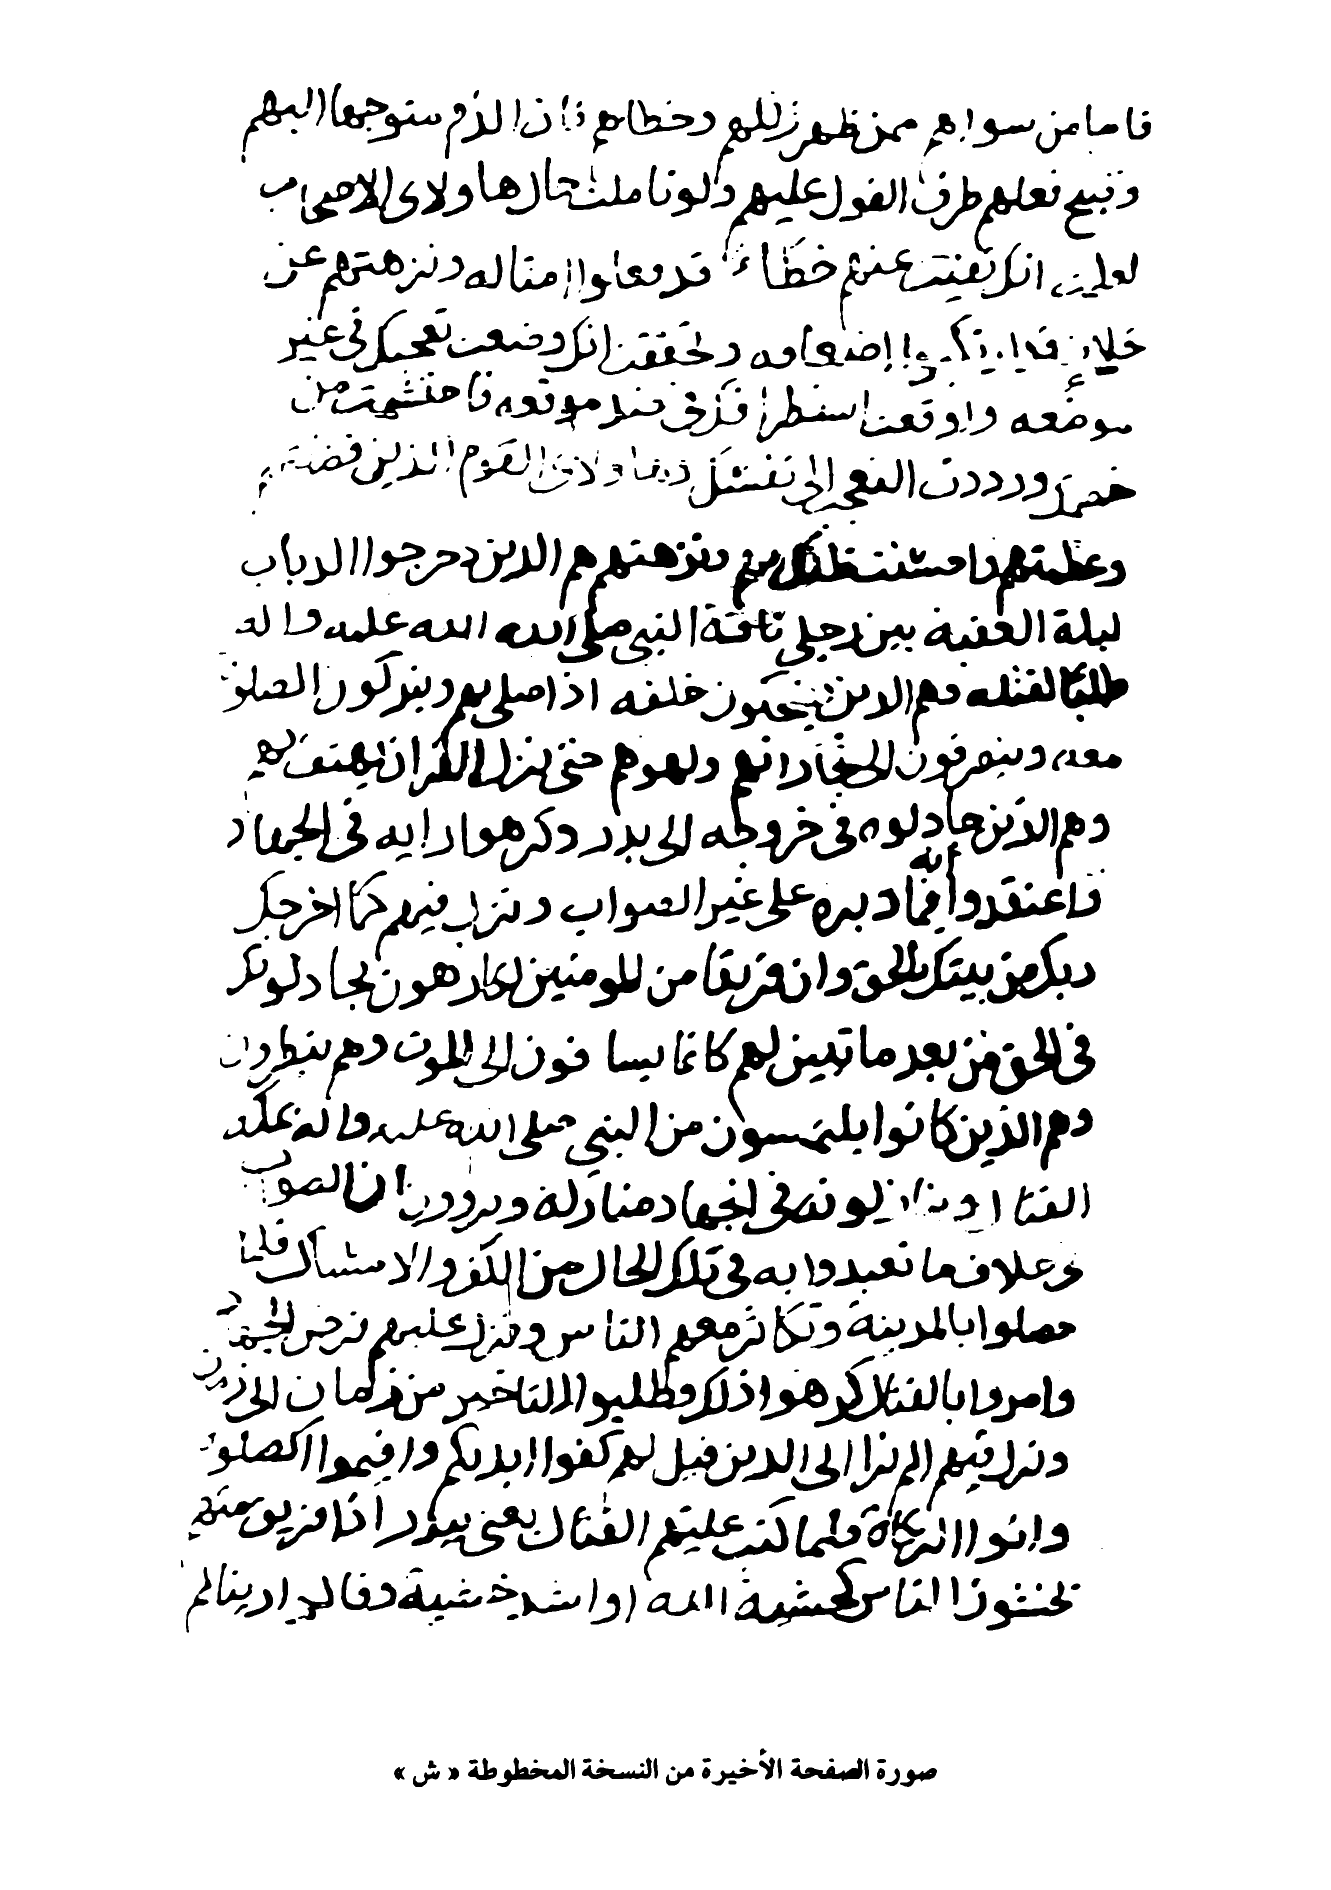 فاما من سواهم ممن ظهر زللهم وخطاهم فان الذم متوجها اليهم
وقبيح فعلهم طرق القول عليهم ولو تاملت حال هاولاى الاصحاب
لعلمت انك نفيت عنهم خطاء قد فعلوا امثاله ونزهتهم عن
خلاف قد ارتكبوا اضعافه وتحققت انك وضعت تعجبك فى غير
موضعه واوقعت استطرافك فى ضد موقعه فاحتشمت من
خصمك ورددت التعجب الى نفسك فهاولاى القوم الذين فضلتهم
وعظمتهم واحسنت ظنك بهم ونزهتهم هم الذين دحرجوا الدباب
ليلة العقبة بين رجلي ناقة النبي صلى الله عليه واله
طلبًا لقتله وهم الذين يضحكون خلفه اذا صلى بهم ويتركون الصلوة
معه وينصرفون الى تجاراتهم ولهوهم حتى نزل القران يهتف بهم
وهم الذين جادلوه فى خروجه الى بدر وكرهوا رايه فى الجهاد
فاعتقدوا أنه فيما دبره على غير الصواب ونزل فيهم كما اخرجك
ربك من بيتك بالحق وان فريقا من المومنين لكارهون يجادلونك
فى الحق من بعد ما تبين لهم كانما يساقون الى الموت وهم ينظرون
وهم الذين كانوا يلتمسون من النبي صلى الله عليه واله بمكة
القتال فى الجهاد منازلة ويرون ان الصواب
خلاف ما تعبدوا به فى تلك الحال من الكف والامساك فلما
حصلوا بالمدينة وتكاثر معهم الناس ونزل عليهم فرض الجهاد
وامروا بالقتال كرهوا ذلك وطلبوا التاخير من زمان الى زمان
ونزل فيهم الم تر الى الذين قيل لهم كفوا ايديكم واقيموا الصلوة
واتوا الزكاة فلما كتب عليهم القتال يعنى ببدر اذا فريق منهم
يخشون الناس كخشية الله او اشد خشية وقالوا ربنا لم
صورة الصفحة الأخيرة من النسخة المخطوطة « ش »